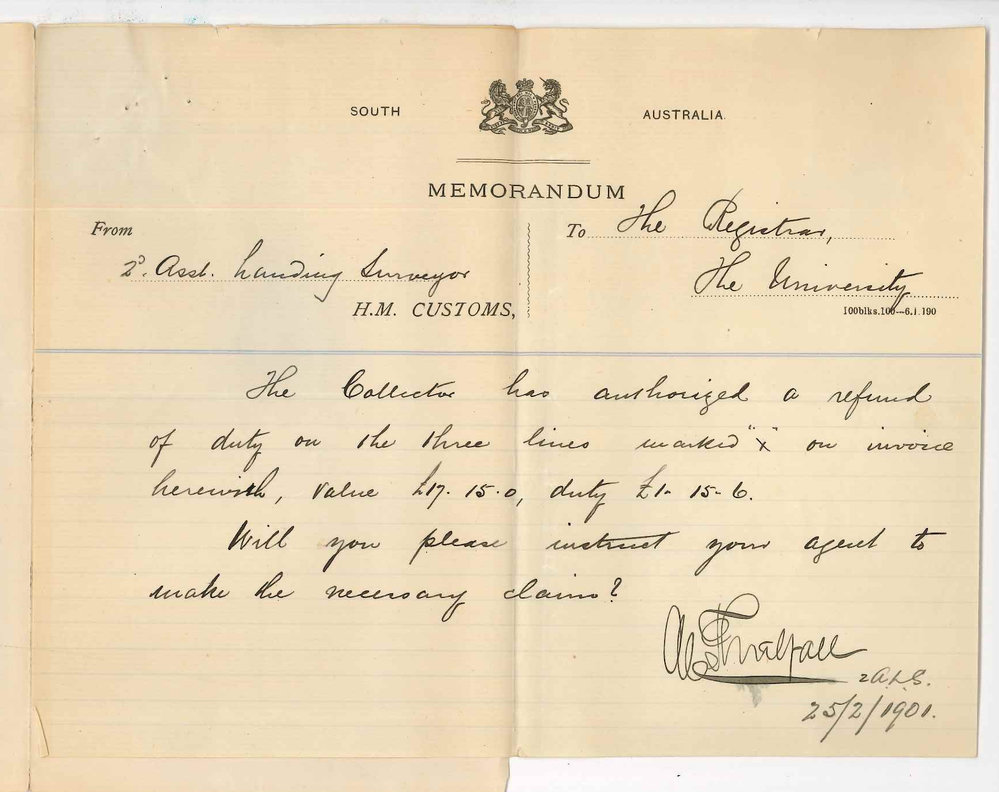 SOUTH AUSTRALIA.
MEMORANDUM
From
To The Registrar,
2D. Asst. Landing Surveyor
The University
H.M. CUSTOMS,
100blks.100—6.1.190
The Collector has authorized a refund
of duty on the three lines marked "x" on invoice
herewith, value £17. 15. 0, duty £1- 15- 6.
Will you please instruct your agent to
make the necessary claim?
2 A.L.S.
25/2/1901.